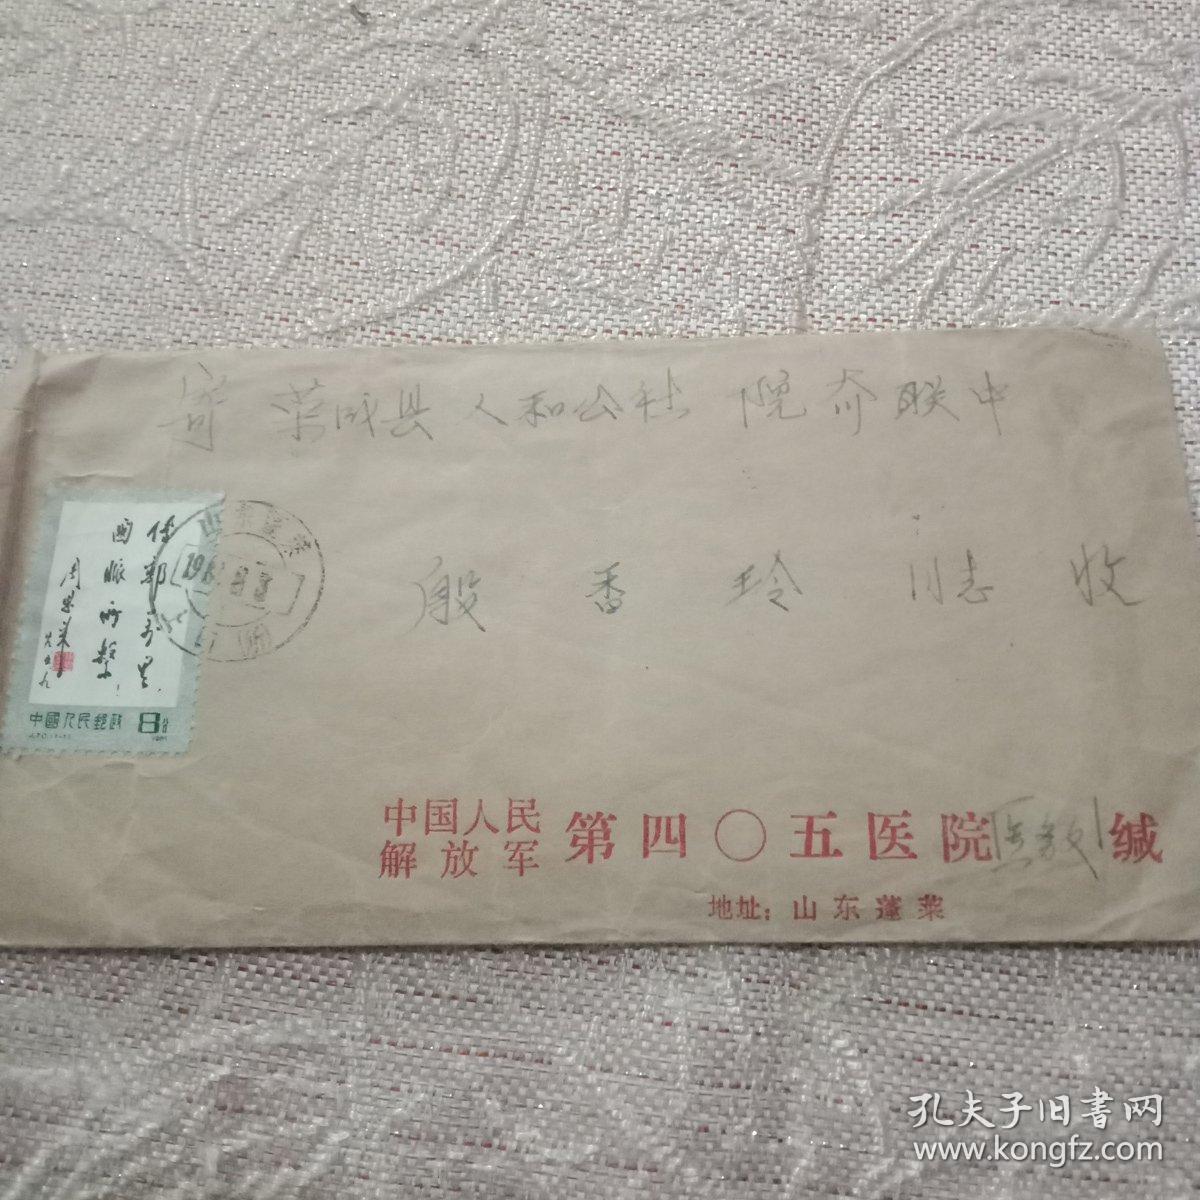 寄 荣成县人和公社 院夼联中
殷香玲 同志 收
传邮万里
国脉所系
周恩来
中国人民邮政 8分
J.70.(1-1) 1981
山东蓬莱
中国人民
解放军
第四〇五医院 缄
地址：山东蓬莱
孔夫子旧书网
www.kongfz.com